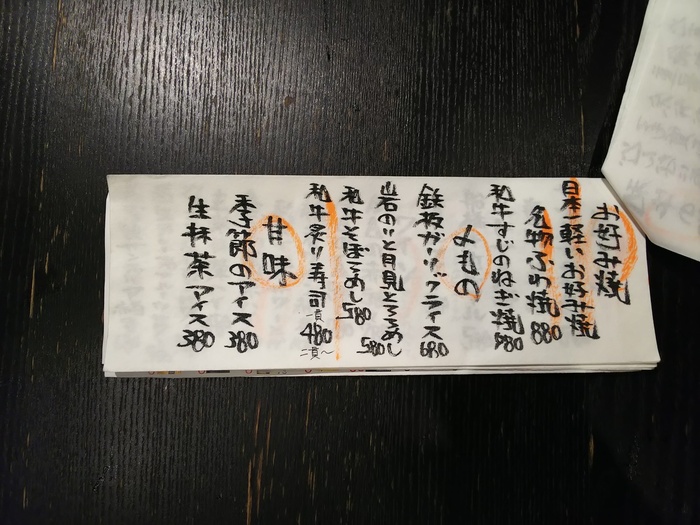 お好み焼
日本一軽いお好み焼
名物ふわ焼 880
和牛すじのねぎ焼 980
〆もの
鉄板ガーリックライス 680
岩のりと月見とろろめし 580
和牛そぼろめし 580
和牛炙り寿司 一貫 480 二貫〜
甘味
季節のアイス 380
生抹茶アイス 380